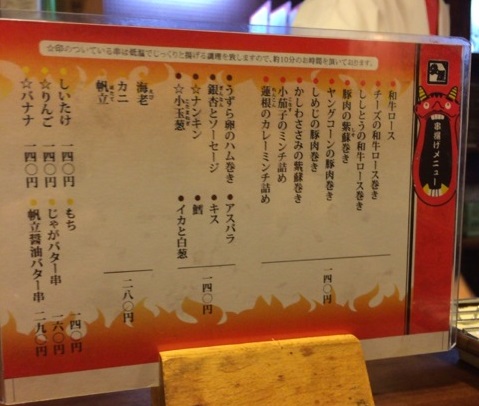 ☆印のついている串は低温でじっくりと揚げる調理を致しますので、約10分のお時間を頂いております。
串揚げメニュー
和牛ロース
チーズの和牛ロース巻き
ししとうの和牛ロース巻き
豚肉の紫蘇巻き
ヤングコーンの豚肉巻き
しめじの豚肉巻き
かしわささみの紫蘇巻き
小茄子のミンチ詰め
蓮根のカレーミンチ詰め
一四〇円
●うずら卵のハム巻き
●銀杏とソーセージ
●☆ナンキン
●☆小玉葱
●アスパラ
●キス
●鱈
●イカと白葱
一四〇円
海老
カニ
帆立
二八〇円
しいたけ 一四〇円
☆りんご 一四〇円
☆バナナ 一四〇円
●もち 一四〇円
●じゃがバター串 一六〇円
●帆立醤油バター串 二九〇円